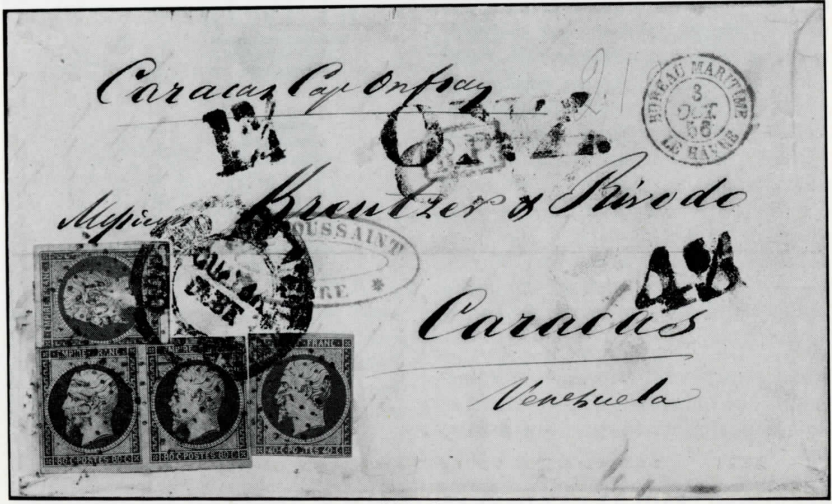 Caracas Cap Onfray
2
BUREAU MARITIME
8
OCT.
56
LE HAVRE
ONZA
P.P.
Messieurs
Kreutzer & Rivodo
TOUSSAINT
Caracas
Venezuela
EMPIRE FRANC
EMPIRE FRANC
EMPIRE FRANC
80 C POSTES 80 C
80 C POSTES 80 C
40 C POSTES 40 C